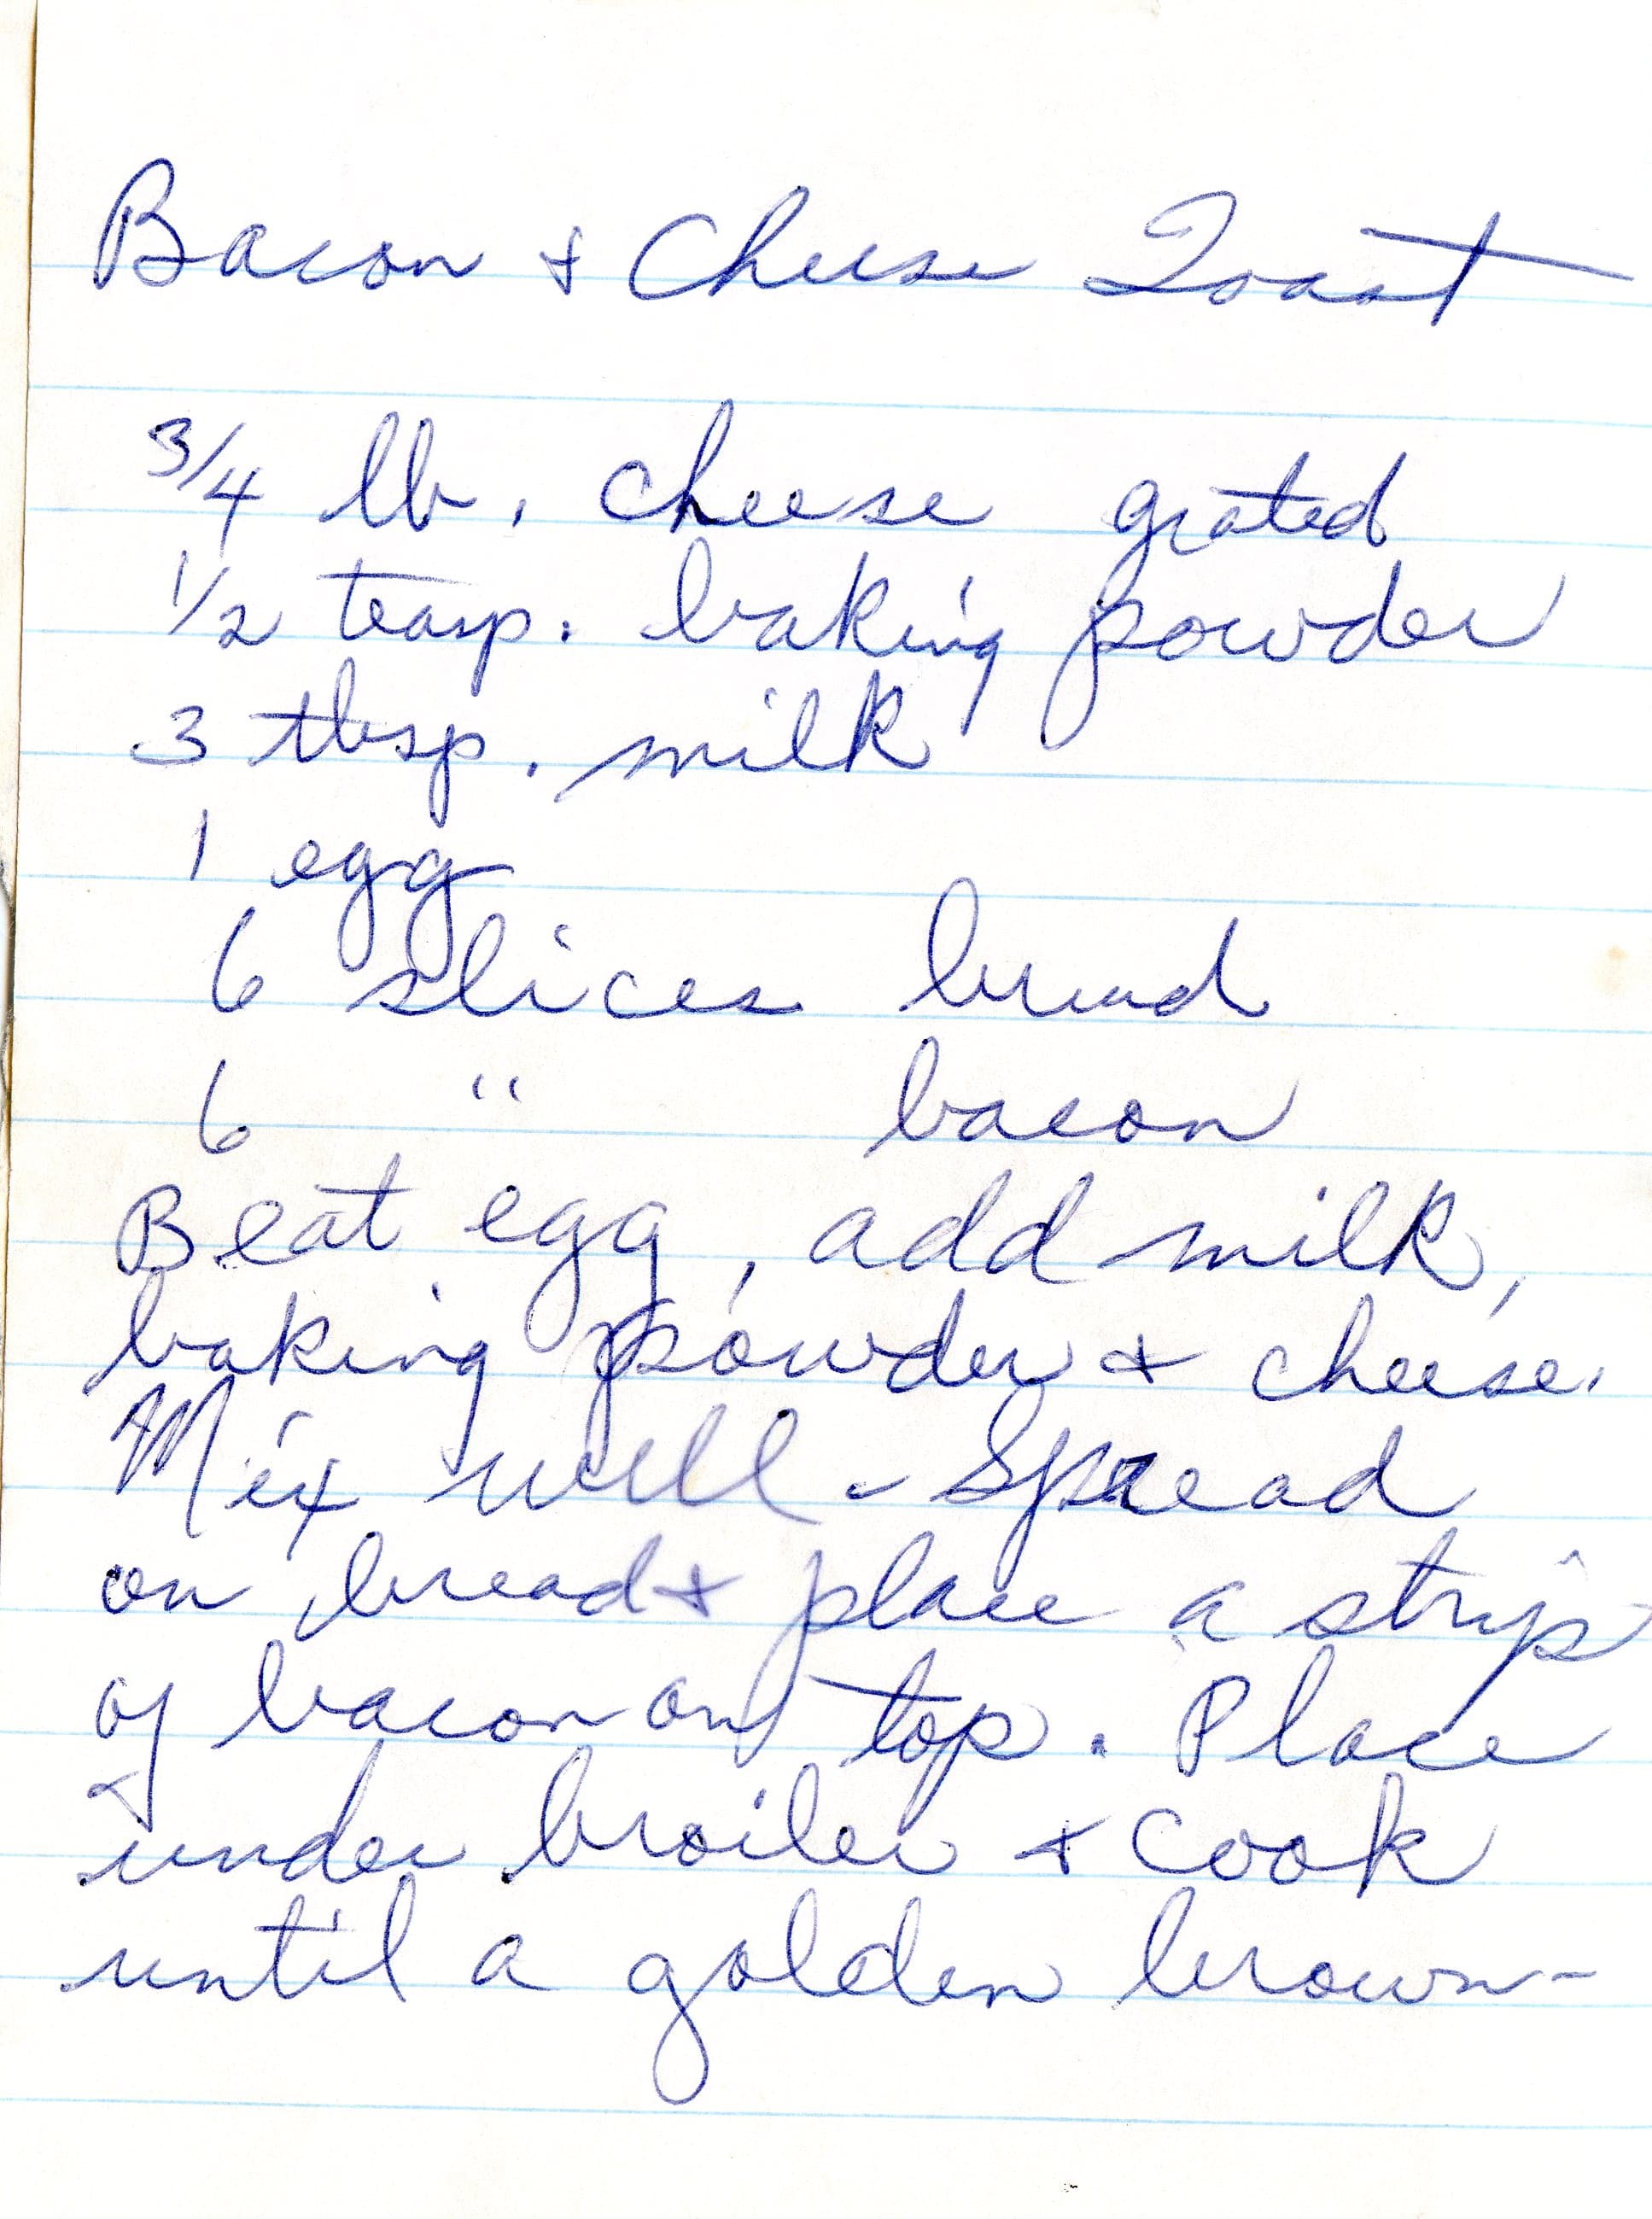 Bacon + Cheese Toast
3/4 lb. cheese grated
1/2 teasp. baking powder
3 tbsp. milk
1 egg
6 slices bread
6 " bacon
Beat egg, add milk,
baking powder + cheese.
Mix well - Spread
on bread + place a strip
of bacon on top. Place
under broiler + cook
until a golden brown-